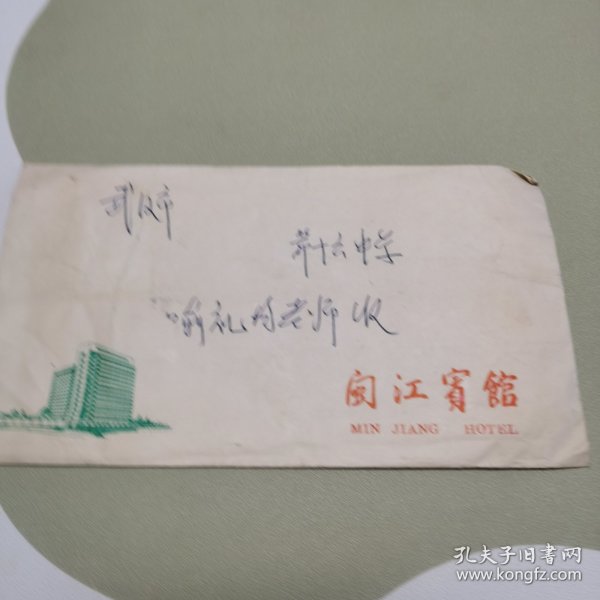 武汉市
第十六中学
喻礼 老师收
闽江賓館
MIN JIANG HOTEL
孔夫子旧书网
www.kongfz.com